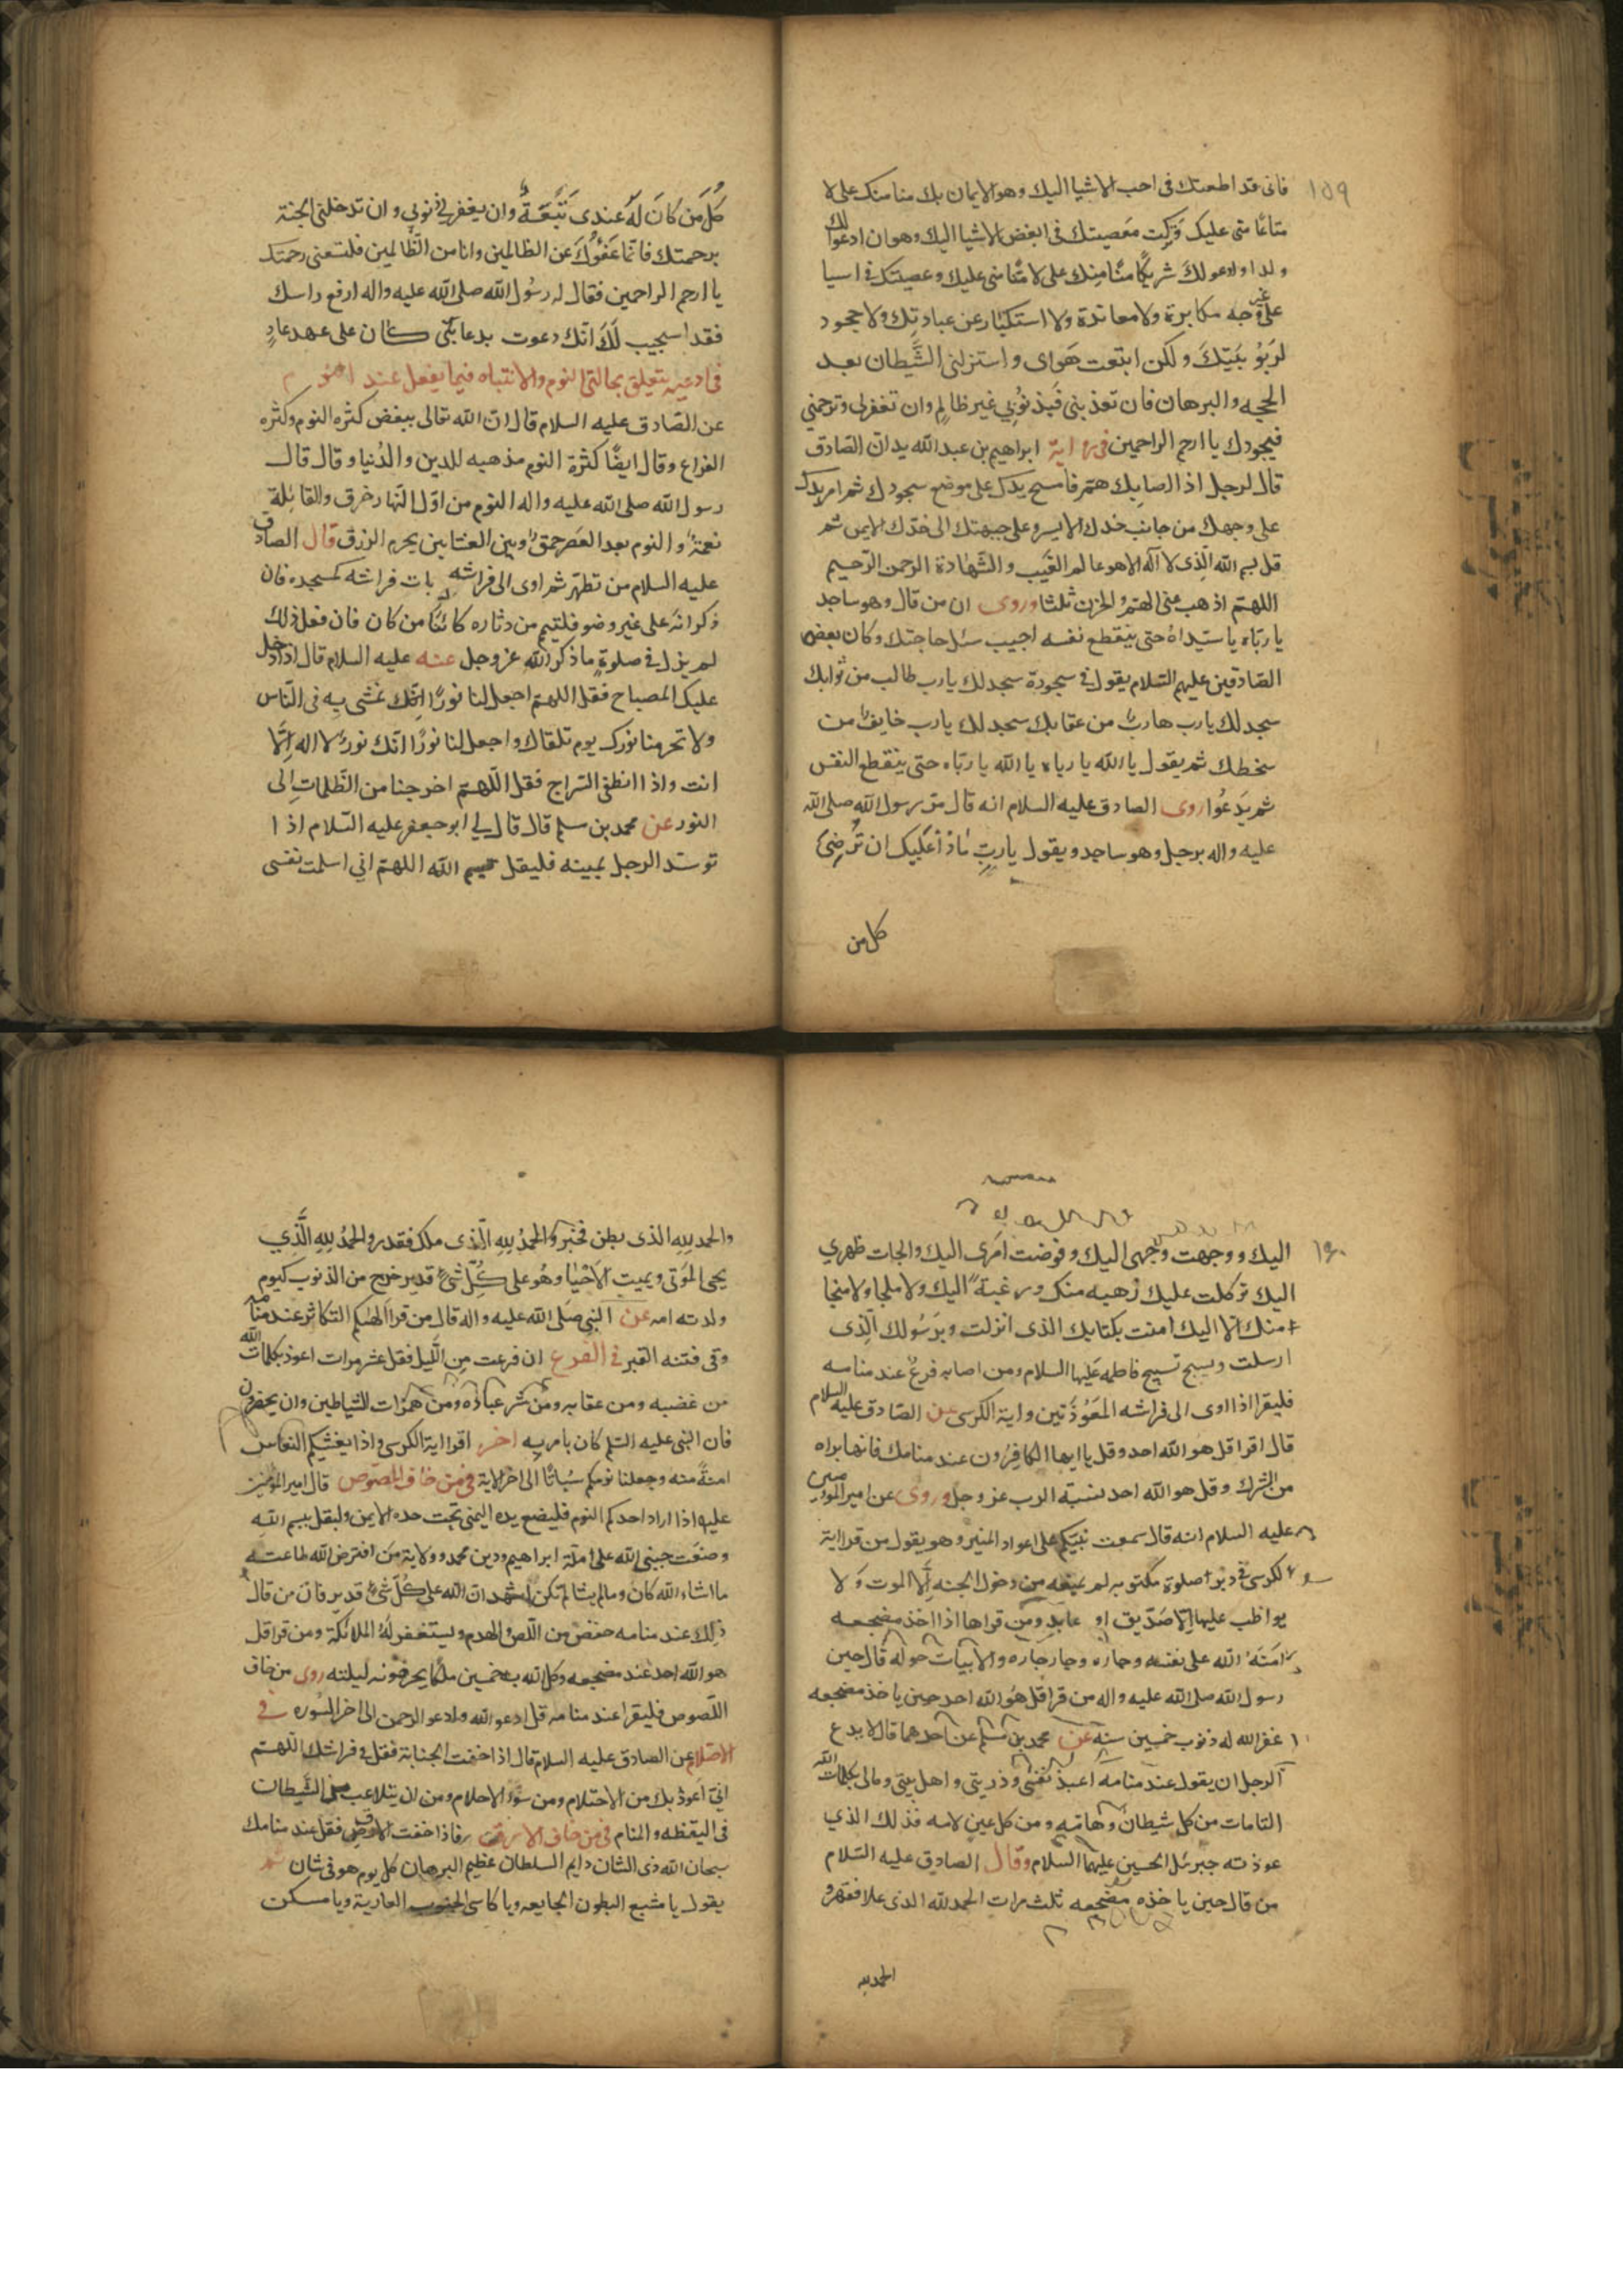 ١٥٩
فانى قد اطعتك فى احب الاشيا اليك وهو الايمان بك منا منك على لا
متاعًا منى عليك وتركت معصيتك فى ابغض الاشيا اليك وهو ان ادعوا لك
ولدا او ادعو لك شريكًا منًا منك على لا منًا منى عليك وعصيتك فى اسيا
على غير وجه مكابرة ولا معاندة ولا استكبار عن عبادتك ولا جحود
لربوبيتك ولكن ابتعت هواى واستزلنى الشيطان بعد
الحجه والبرهان فان تعذبنى فبذنوبي غير ظالم وان تغفرلى وترحمنى
فبجودك يا ارحم الراحمين فى رواية ابراهيم بن عبد الله يد ان الصادق
قال لرجل اذا اصابك هم فامسح يدك على موضع سجودك ثم امر يدك
على وجهك من جانب خدك الايسر وعلى جبهتك الى خدك الايمن ثم
قل بسم الله الذى لا اله الا هو عالم الغيب والشهادة الرحمن الرحيم
اللهم اذهب عنى الهم والحزن ثلثا وروى ان من قال وهو ساجد
يا رباه يا سيداه حتى ينقطع نفسه اجيب سئل حاجتك وكان بعض
الصادقين عليهم السلام يقول فى سجوده سجد لك يا رب طالب من ثوابك
سجد لك يا رب هارب من عقابك سجد لك يا رب خايف من
سخطك ثم يقول يا الله يا رباه يا الله يا رباه حتى ينقطع النفس
ثم يدعوا روى الصادق عليه السلام انه قال مر رسول الله صلى الله
عليه واله برجل وهو ساجد ويقول يا رب ماذا عليك ان ترضى
كل من
كل من كان له عندى تبعة وان يغفر لى ذنوبى وان تدخلنى الجنة
برحمتك فانما عفوك عن الظالمين وانا من الظالمين فلتسعنى رحمتك
يا ارحم الراحمين فقال له رسول الله صلى الله عليه واله ارفع راسك
فقد اسجيب لك انك دعوت بدعا نبى كان على عهد عاد
فى ادعيه يتعلق بحالتى النوم والانتباه فيما يفعل عند النوم
عن الصادق عليه السلام قال ان الله تعالى يبغض كثره النوم وكثره
الفراغ وقال ايضًا كثرة النوم مذهبه للدين والدنيا وقال قال
رسول الله صلى الله عليه واله النوم من اول النهار خرق والقائلة
نعمة والنوم بعد العصر حمق وبين العشاين يحرم الرزق قال الصادق
عليه السلام من تطهر ثم اوى الى فراشه بات فراشه كمسجده فان
ذكر انه على غير وضو فلتيمم من دثاره كائنًا من كان فان فعل ذلك
لم يزل فى صلوة ما ذكر الله عز وجل عنه عليه السلام قال اذا دخل
عليك المصباح فقل اللهم اجعل لنا نورًا نمشى به فى الناس
ولا تحرمنا نورك يوم نلقاك واجعل لنا نورًا انك نور لا اله الا
انت واذا انطفى السراج فقل اللهم اخرجنا من الظلمات الى
النور عن محمد بن مسلم قال قال لى ابو جعفر عليه السلام اذا
توسد الرجل يمينه فليقل بسم الله اللهم انى اسلمت نفسى
١٦٠
اليك ووجهت وجهى اليك وفوضت امرى اليك والجات ظهري
اليك توكلت عليك رهبه منك ورغبة اليك ولا ملجا ولا منجا
منك الا اليك امنت بكتابك الذى انزلت وبرسولك الذى
ارسلت ويسبح تسبيح فاطمه عليها السلام ومن اصابه فزع عند منامه
فليقرا اذا اوى الى فراشه المعوذتين واية الكرسى عن الصادق عليه السلام
قال اقرا قل هو الله احد وقل يا ايها الكافرون عند منامك فانها براه
من الشرك وقل هو الله احد نسبة الرب عز وجل وروى عن امير المومنين
عليه السلام انه قال سمعت نبيكم على اعواد المنبر وهو يقول من قرا اية
الكرسى فى دبر صلوة مكتوبه لم يمنعه من دخول الجنه الا الموت ولا
يواظب عليها الا صديق او عابد ومن قراها اذا اخذ مضجعه
امنه الله على نفسه وجاره وجار جاره والابيات حوله قال حين
رسول الله صلى الله عليه واله من قرا قل هو الله احد حين ياخذ مضجعه
غفر الله له ذنوب خمسين سنة عن محمد بن مسلم عن احدهما قال لا يدع
الرجل ان يقول عند منامه اعيذ نفسى وذريتى واهل بيتى ومالى بكلمات الله
التامات من كل شيطان وهامه ومن كل عين لامه فذلك الذي
عوذ به جبرئل الحسين عليهما السلام وقال الصادق عليه السلام
من قال حين ياخذه مضجعه ثلث مرات الحمد لله الذى علا فقهر و
الحمد لله
والحمد لله الذى بطن فخبر والحمد لله الذى ملك فقدر والحمد لله الذي
يحى الموتى ويميت الاحيا وهو على كل شئ قدير خرج من الذنوب كيوم
ولدته امه عن النبى صلى الله عليه واله قال من قرا الهيكم التكاثر عند منامه
وقى فتنه القبر فى الفزع ان فزعت من الليل فقل عشر مرات اعوذ بكلمات الله
من غضبه ومن عقابه ومن شر عباده ومن همزات الشياطين وان يحضرون
فان النبى عليه السلم كان يامر به اخر اقرا اية الكرسى واذا يغشيكم النعاس
امنةً منه وجعلنا نومكم سباتًا الى اخر الاية فى من خاف اللصوص قال امير المومنين
عليه اذا اراد احدكم النوم فليضع يده اليمنى تحت خده الايمن وليقل بسم الله
وضعت جنبى لله على ملة ابراهيم ودين محمد وولاية من افترض الله طاعته
ما اشاء الله كان وما لم يشا لم تكن اشهد ان الله على كل شئ قدير فان من قال
ذلك عند منامه حفض من اللص والهدم ويستغفر له الملائكة ومن قرا قل
هو الله احد عند مضجعه وكل الله به خمسين ملكًا يحرفونه ليلته روى من خاف
اللصوص فليقرا عند منامه قل ادعو الله وادعو الرحمن الى اخر السوره فى
الاحتلام عن الصادق عليه السلام قال اذا خفت الجنابة فقل فى فراشك اللهم
انى اعوذ بك من الاحتلام ومن سوء الاحلام ومن ان يتلاعب بى الشيطان
فى اليقظه والمنام فى من خاف الارق فاذا خفت الارق فقل عند منامك
سبحان الله ذى الشان دايم السلطان عظيم البرهان كل يوم هو فى شان ثم
يقول يا مشبع البطون الجايعه ويا كاسى الجنوب العارية ويا مسكن